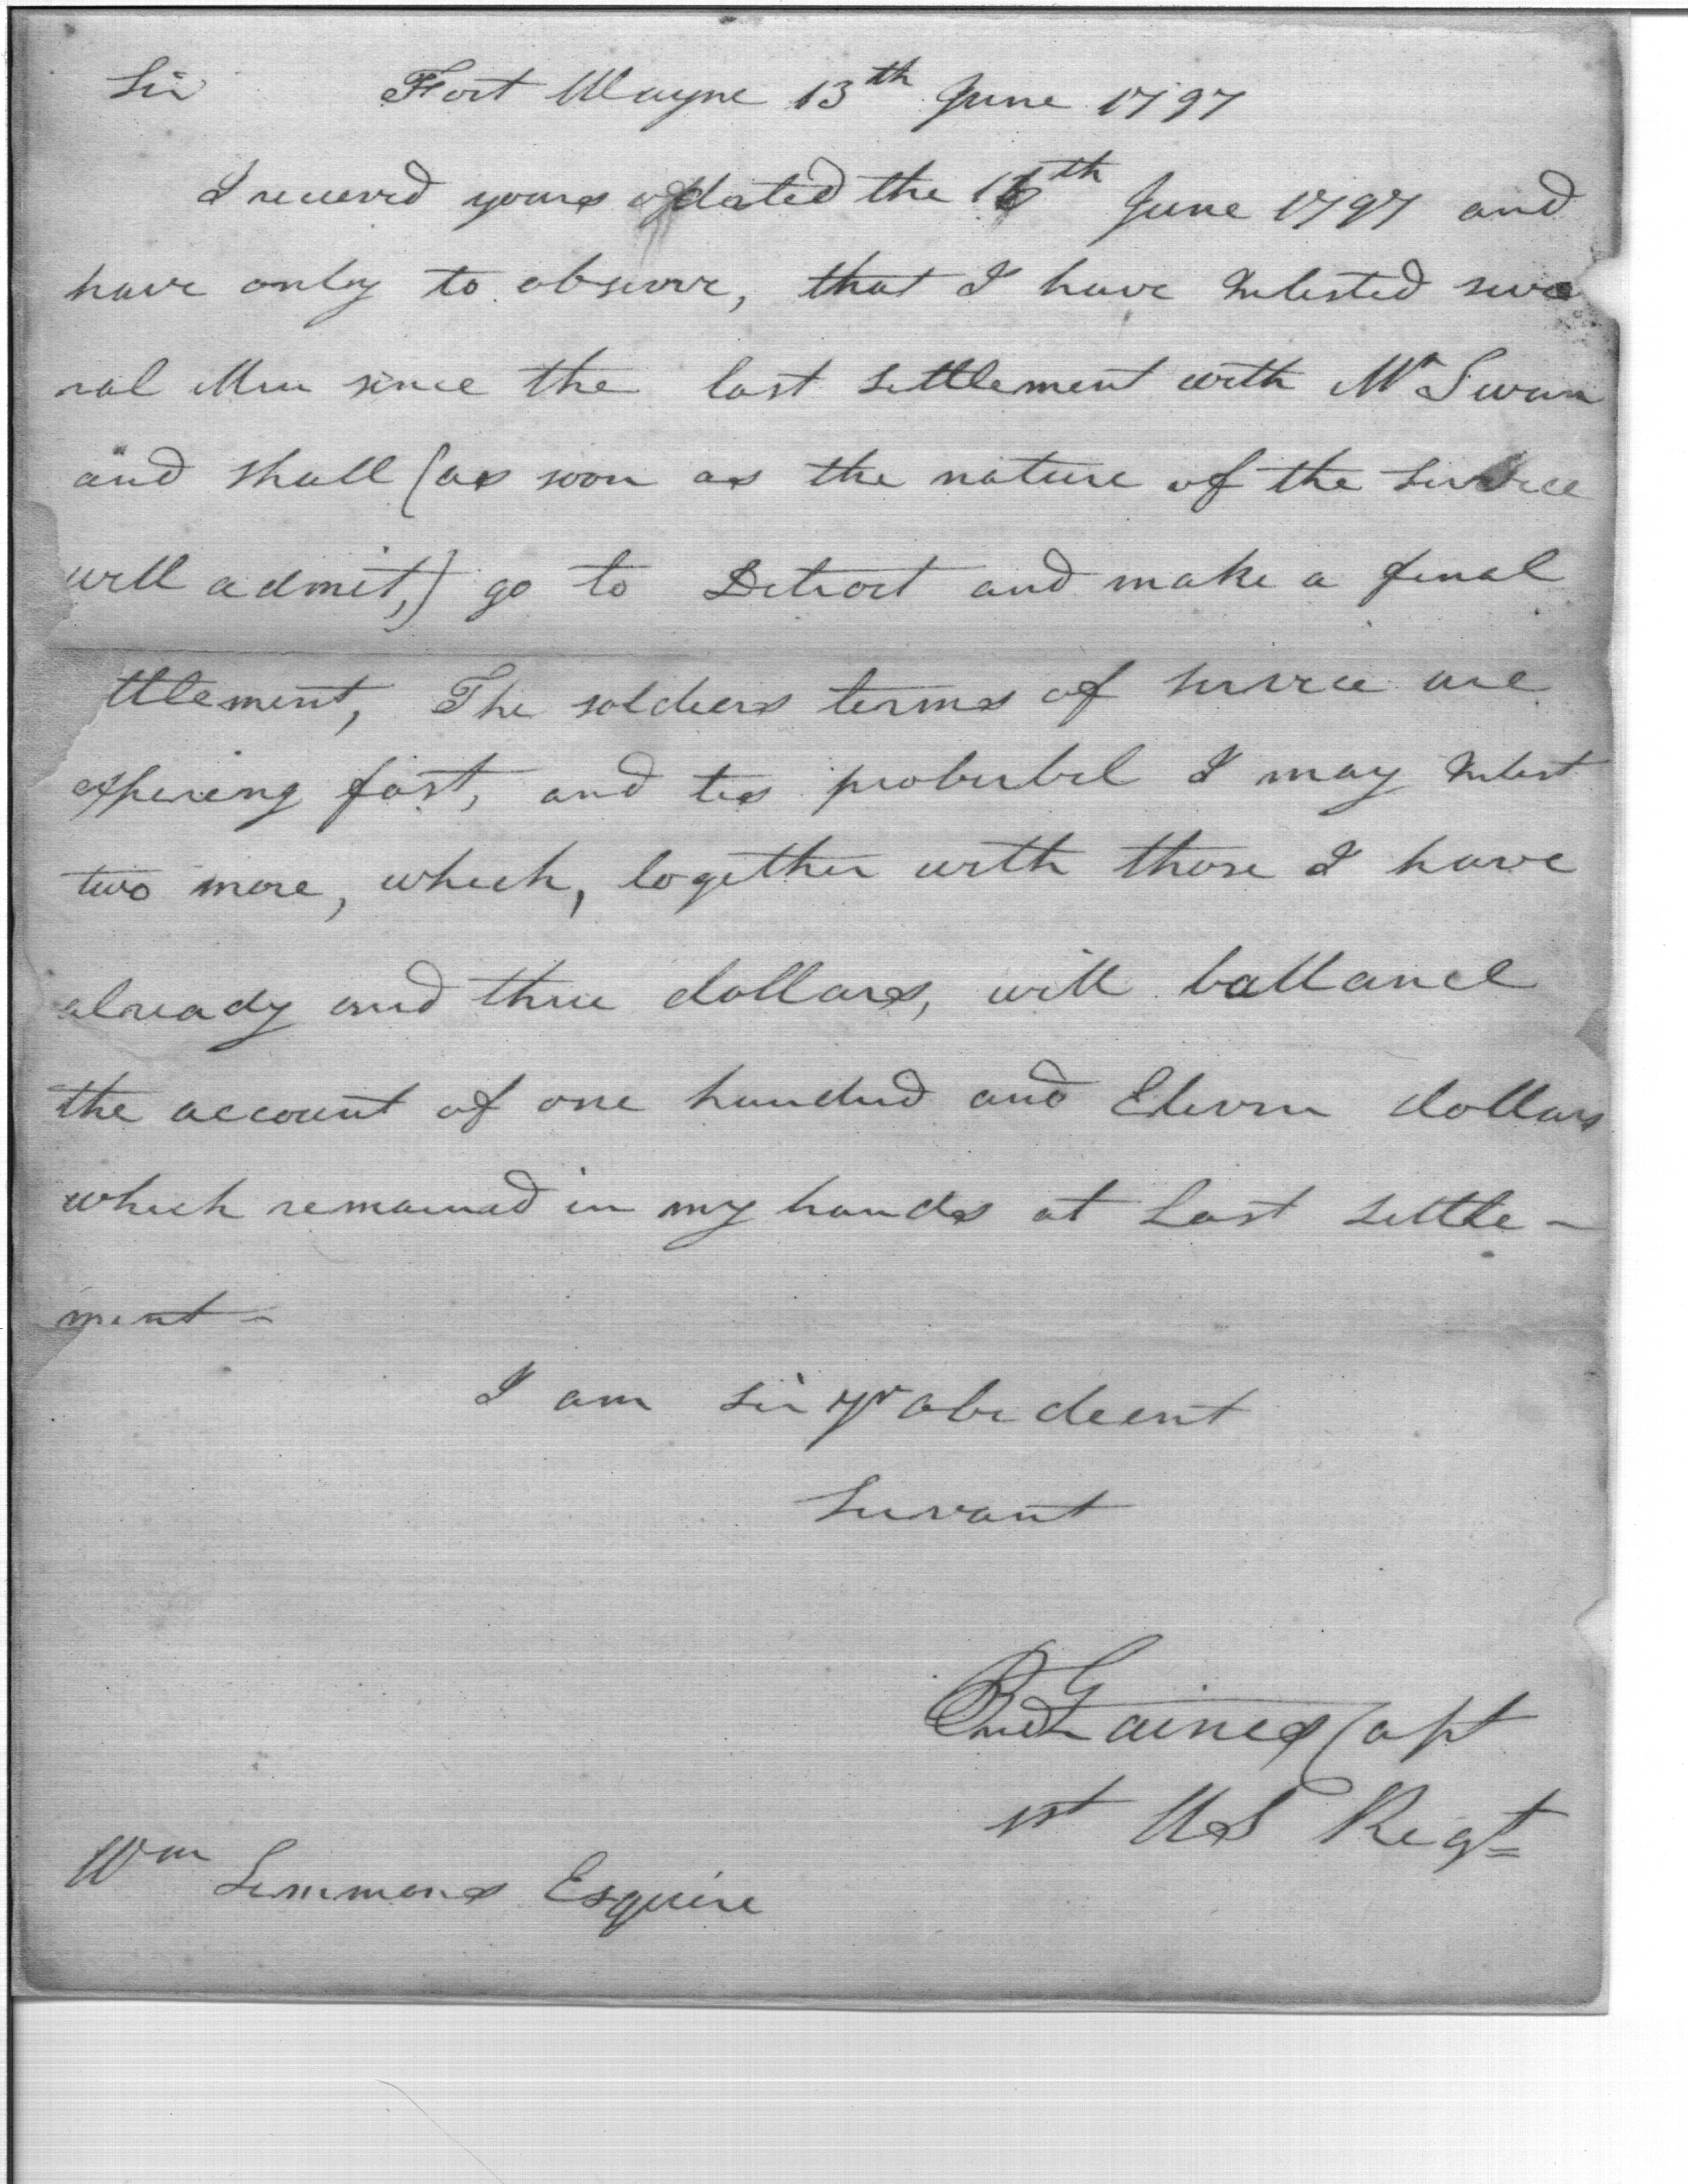 Sir Fort Wayne 13th June 1797
I recieved yours dated the June 1797 and
have only to observe, that I have Inlisted seve
ral Men since the last settlement with Mr Swan
and shall (as soon as the nature of the Service
will admit,) go to Detroit and make a final
ttlement, The soldiers terms of service are
expiring fast, and tis probubel I may Inlist
two more, which, together with those I have
already and three dollars, will ballance
the account of one hundred and Eleven dollars
which remained in my hands at Last settle-
ment-
I am sir yr obedient
Servant
Gaines Capt
1st US Regt
Wm Simmons Esquire